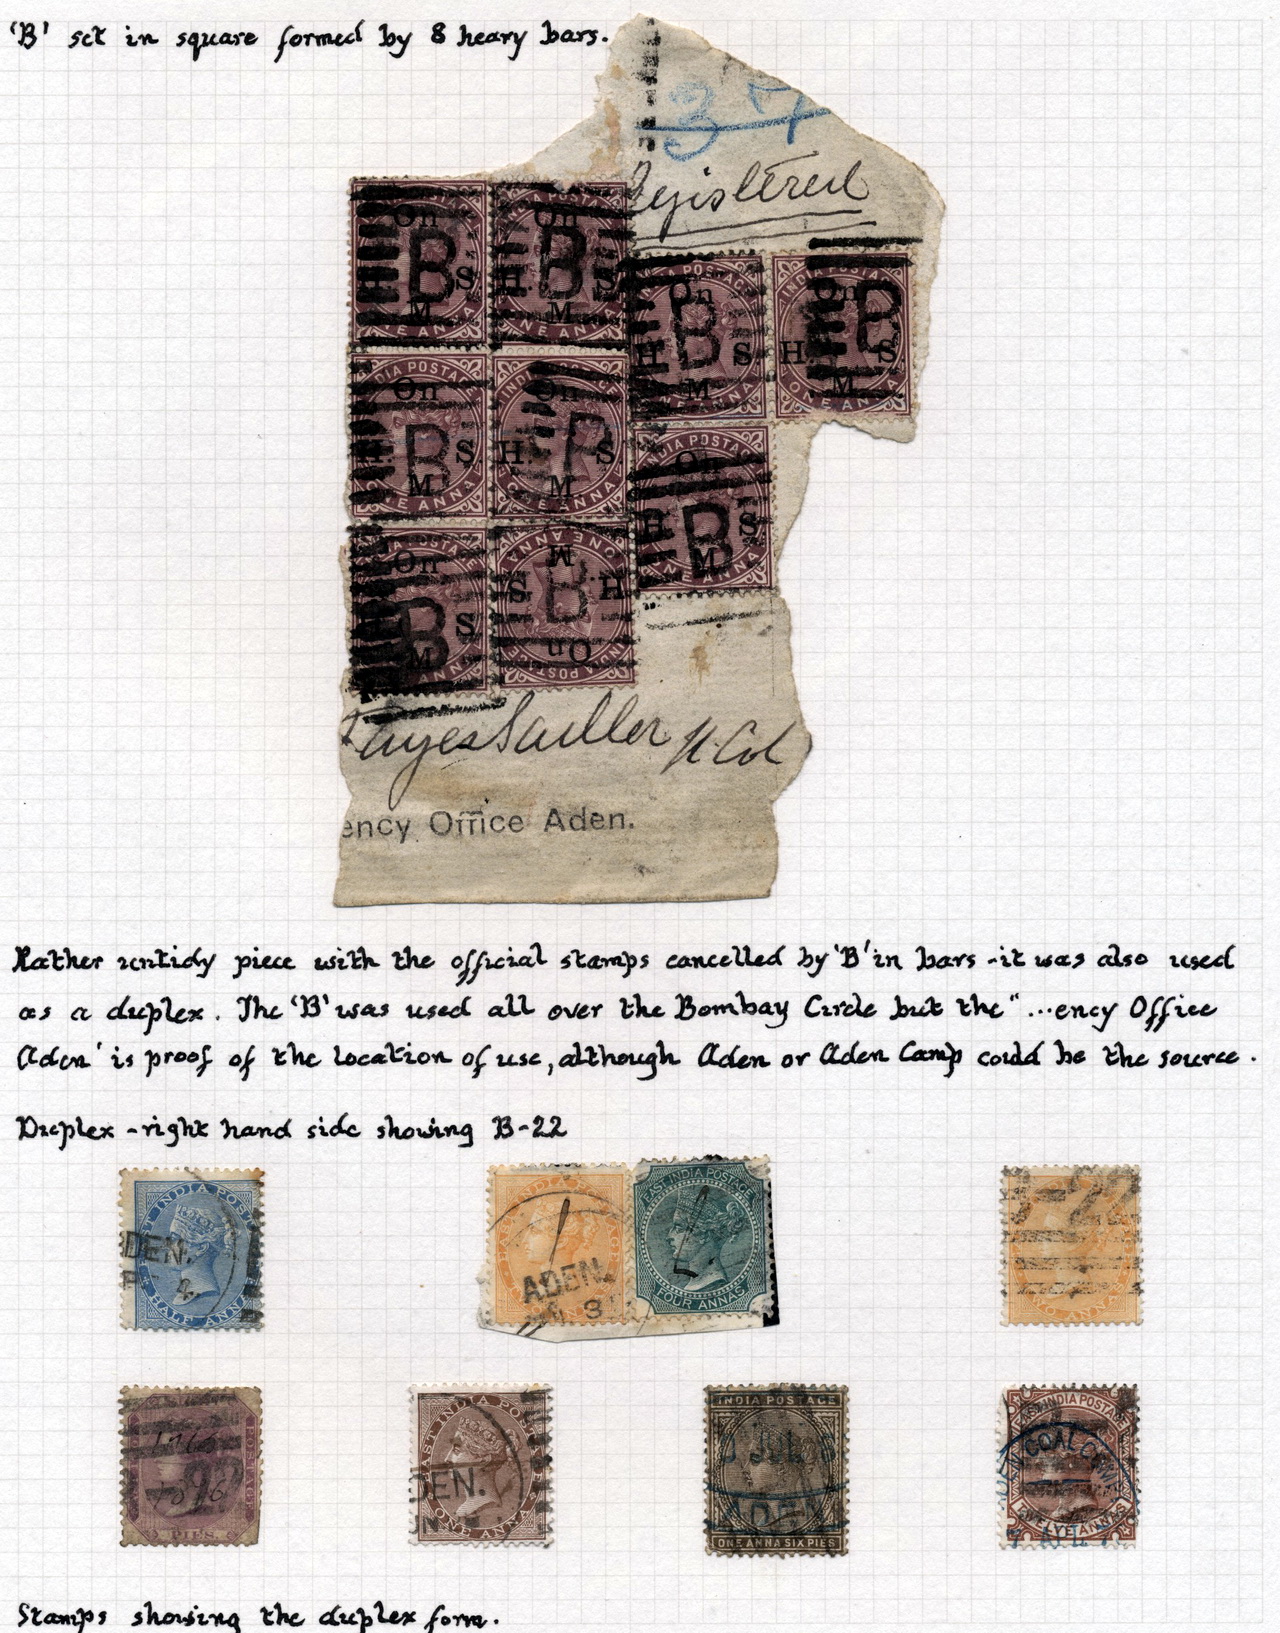 'B' set in square formed by 8 heavy bars.
37
Registered
On H. S. M.
B
INDIA POSTAGE
ONE ANNA
HayesSadller Lt Col
ency Office Aden.
Rather untidy piece with the official stamps cancelled by 'B' in bars - it was also used
as a duplex. The 'B' was used all over the Bombay Circle but the "...ency Office
Aden' is proof of the location of use, although Aden or Aden Camp could be the source.
Duplex - right hand side showing B-22
EAST INDIA POSTAGE
DEN.
HALF ANNA
ADEN.
EAST INDIA POSTAGE
FOUR ANNAS
B-22
TWO ANNAS
PIES.
EAST INDIA POSTAGE
DEN.
ONE ANNA
INDIA POSTAGE
ADEN
ONE ANNA SIX PIES
EAST INDIA POSTAGE
EN COAL COMP
TWELVE ANNAS
7 APL
Stamps showing the duplex form.